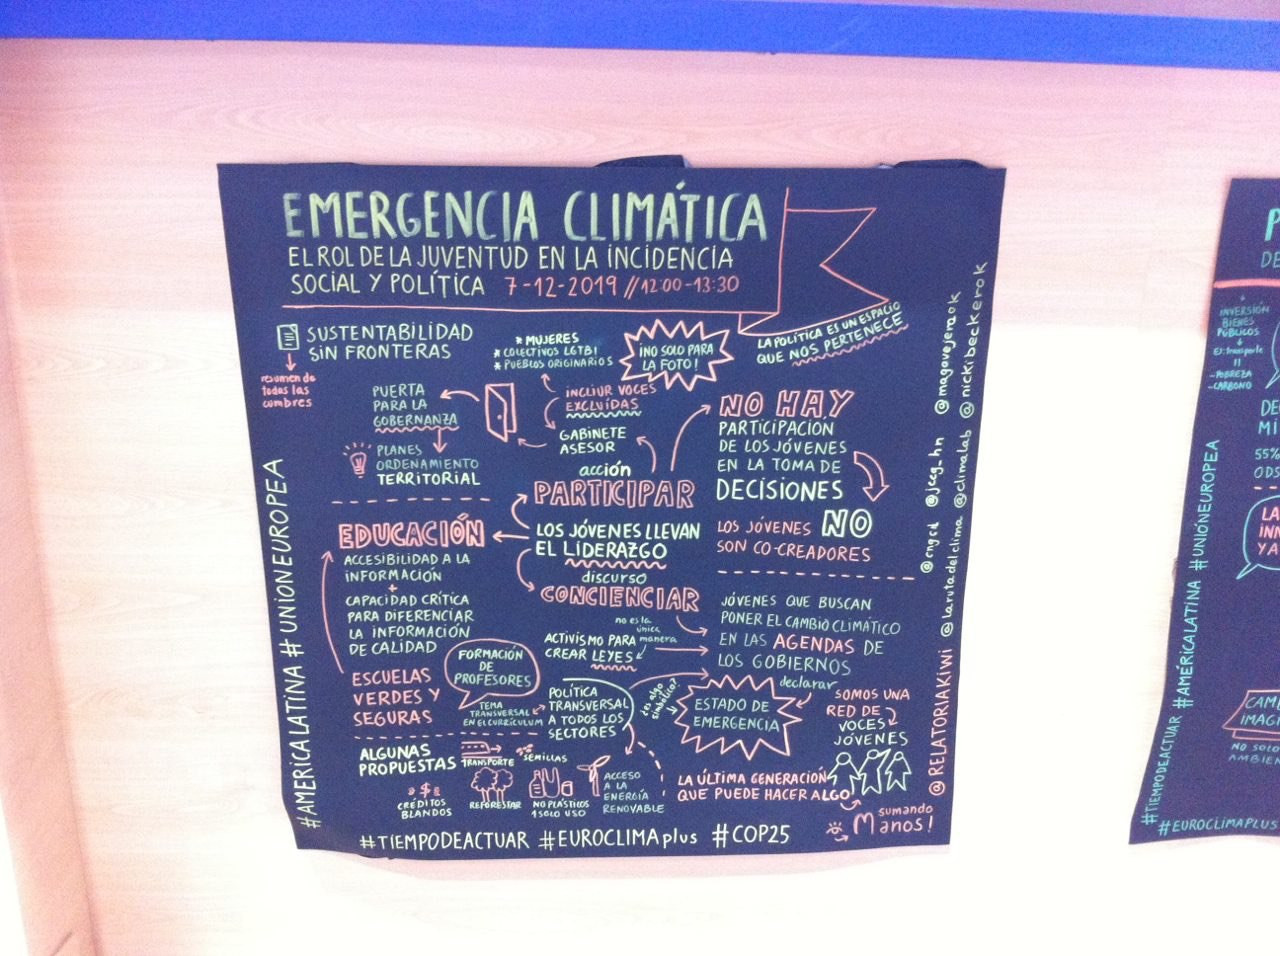 EMERGENCIA CLIMÁTICA
EL ROL DE LA JUVENTUD EN LA INCIDENCIA
SOCIAL Y POLÍTICA 7-12-2019 // 12:00-13:30
SUSTENTABILIDAD
SIN FRONTERAS
resumen de
todas las
cumbres
* MUJERES
* COLECTIVOS LGTBI
* PUEBLOS ORIGINARIOS
¡NO SOLO PARA
LA FOTO!
LA POLÍTICA ES UN ESPACIO
QUE NOS PERTENECE
PUERTA
PARA LA
GOBERNANZA
INCLIUR VOCES
EXCLUÍDAS
GABINETE
ASESOR
PLANES
ORDENAMIENTO
TERRITORIAL
acción
PARTICIPAR
NO HAY
PARTICIPACIÓN
DE LOS JÓVENES
EN LA TOMA DE
DECISIONES
LOS JÓVENES NO
SON CO-CREADORES
EDUCACIÓN
LOS JÓVENES LLEVAN
EL LIDERAZGO
ACCESIBILIDAD A LA
INFORMACIÓN
+
CAPACIDAD CRÍTICA
PARA DIFERENCIAR
LA INFORMACIÓN
DE CALIDAD
discurso
CONCIENCIAR
no es la
única
manera
ACTIVISMO PARA
CREAR LEYES
JÓVENES QUE BUSCAN
PONER EL CAMBIO CLIMÁTICO
EN LAS AGENDAS DE
LOS GOBIERNOS
declarar
ESTADO DE
EMERGENCIA
¿es algo
simbólico?
ESCUELAS
VERDES Y
SEGURAS
FORMACIÓN
DE
PROFESORES
TEMA
TRANSVERSAL
EN EL CURRÍCULUM
POLÍTICA
TRANSVERSAL
A TODOS LOS
SECTORES
SOMOS UNA
RED DE
VOCES
JÓVENES
ALGUNAS
PROPUESTAS
TRANSPORTE
SEMILLAS
CRÉDITOS
BLANDOS
REFORESTAR
NO PLÁSTICOS
1 SOLO USO
ACCESO
A LA
ENERGÍA
RENOVABLE
LA ÚLTIMA GENERACIÓN
QUE PUEDE HACER ALGO
sumando
Manos!
#TIEMPODEACTUAR #EUROCLIMAplus #COP25
#AMERICALATINA #UNIONEUROPEA
@RELATORIAKIWI @larutadelclima @climalab @nickibeckerok
@jccg_hn @magovejeraok
INVERSIÓN
BIENES
PÚBLICOS
POBREZA
-CARBONO
DE
MI
55%
ODS
LA
YA
NO SOLO
AMBIEN
#TIEMPODEACTUAR #AMÉRICALATINA #UNIÓNEUROPEA
#EUROCLIMAPLUS